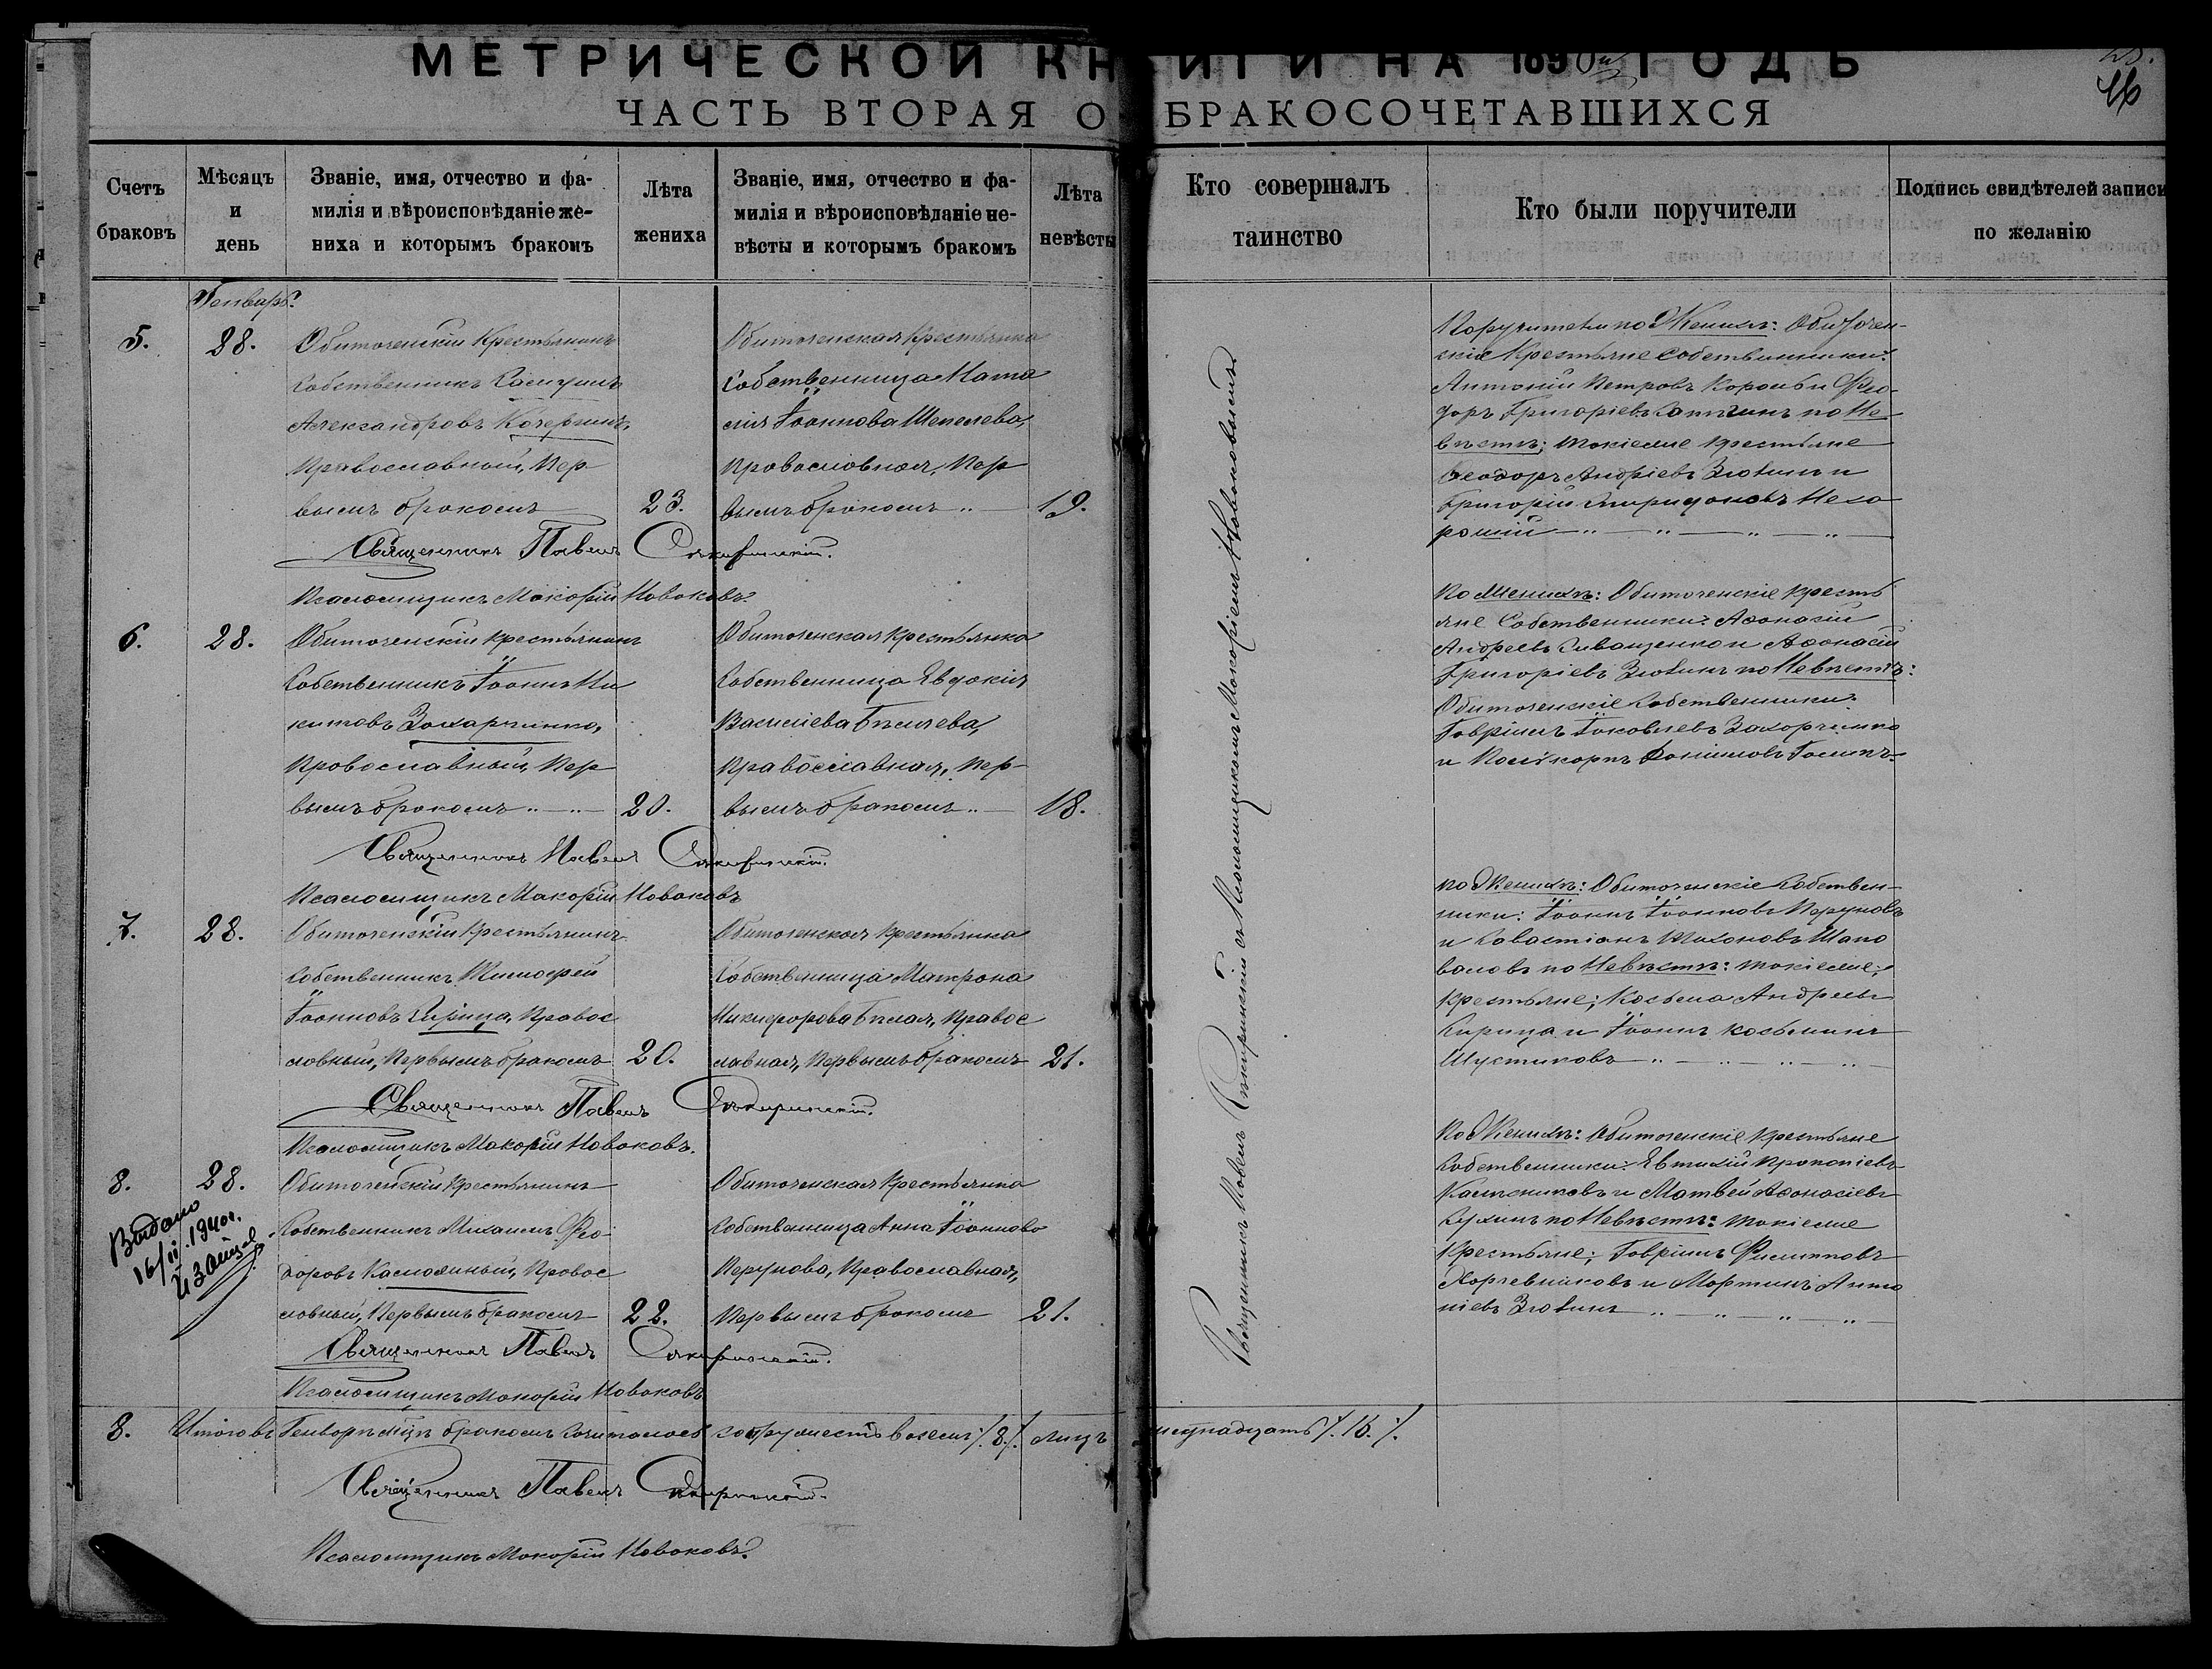 МЕТРИЧЕСКОЙ КНИГИ НА 1890й ГОДЪ
46
ЧАСТЬ ВТОРАЯ О БРАКОСОЧЕТАВШИХСЯ
Счетъ браковъ
Мѣсяцъ и день
Званіе, имя, отчество и фа-
милія и вѣроисповѣданіе же-
ниха и которымъ бракомъ
Лѣта жениха
Званіе, имя, отчество и фа-
милія и вѣроисповѣданіе не-
вѣсты и которымъ бракомъ
Лѣта невѣсты
Кто совершалъ таинство
Кто были поручители
Подпись свидѣтелей записи по желанію
Генварь.
5.
28.
Обиточенскій Крестьянинъ
Собственникъ
Александровъ Кочергинъ,
Православный, Пер
вымъ бракомъ
23.
Обиточенская Крестьянка
Собственница Мата
Іоаннова Шепелева,
Православная, Пер
вымъ бракомъ
19.
Поручители по Женихѣ: Обиточен-
скіе Крестьяне собственники:
Антоній Петровъ Коробъ и Фео-
доръ Григоріевъ по Не
вѣстѣ; такіеже крестьяне
Ѳеодоръ Андріевъ Зютинъ и
Григорій Спиридоновъ Нехо
рошій
Священникъ Павелъ
Псаломщикъ Макарій Новаковъ.
6.
28.
Обиточенскій крестьянинъ
Собственникъ Іоаннъ Ни
китовъ Захарченко,
Православный, Пер
вымъ бракомъ
20.
Обиточенская крестьянка
Собственница Евдокія
Василіева Бѣляева,
Православная, Пер-
вымъ бракомъ
18.
По Женихѣ: Обиточенскіе кресть
яне Собственники: Аѳанасій
Андреевъ и Аѳанасій
Григоріевъ Зютинъ по Невѣстѣ:
Обиточенскіе Собственники:
Гавріилъ Іаковлевъ Захарченко
и Поликарпъ Даніиловъ
Священникъ Павелъ
Псаломщикъ Макарій Новаковъ
7.
28.
Обиточенскій Крестьянинъ
Собственникъ Тимофей
Іоанновъ Кирица, Правос
лавный, Первымъ бракомъ
20.
Обиточенская крестьянка
Собственница Матрона
Никифорова Бѣлая, Правос
лавная, Первымъ бракомъ
21.
по Женихѣ: Обиточенскіе Собствен-
ники: Іоаннъ Іоанновъ Перуновъ
и Савастіанъ Тихоновъ Шапо
валовъ по Невѣстѣ: такіеже;
крестьяне; Косьма Андреевъ
Кирица и Іоаннъ Косьминъ
Шустиковъ
Священникъ Павелъ
Псаломщикъ Макарій Новаковъ.
8.
28.
Обиточенскій Крестьянинъ
Собственникъ Михаилъ Фео-
доровъ Правос
лавный, Первымъ бракомъ
22.
Обиточенская Крестьянка
Собственница Анна Іоаннова
Перунова, Православная,
Первымъ бракомъ
21.
По Женихѣ: Обиточенскіе крестьяне
Собственники: Евтихій Прокопіевъ
Калашниковъ и Матвей Аѳанасіевъ
по Невѣстѣ: такіеже
Крестьяне; Гавріилъ Филипповъ
Харчевниковъ и Мартинъ Анто
ніевъ Зютинъ
Выдано
16/II.1940г.
Священникъ Павелъ
Псаломщикъ Макарій Новаковъ
8.
Итого въ Генварѣ мцѣ бракомъ сочеталось супружествъ восемь ./.8./. лицъ шестнадцать ./.16./.
Священникъ Павелъ
Псаломщикъ Макарій Новаковъ.
Священникъ Павелъ съ Псаломщикомъ Макаріемъ Новаковымъ.